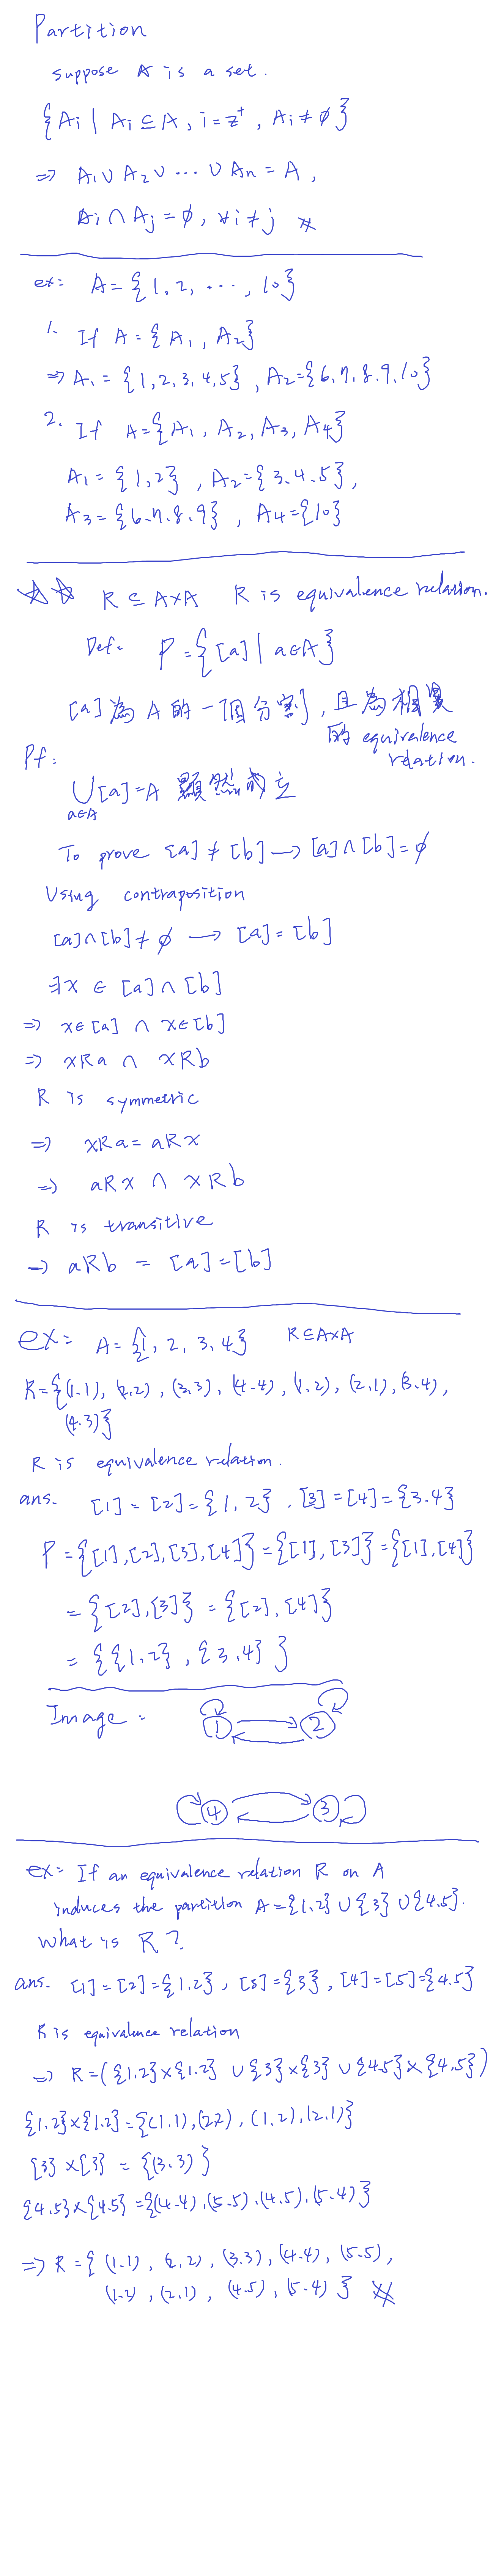 Partition
suppose A is a set.
{Ai | Ai ⊆ A, i = z⁺, Ai ≠ ∅}
⇒ A₁ ∪ A₂ ∪ ... ∪ An = A,
Ai ∩ Aj = ∅, ∀i ≠ j ※
ex: A = {1, 2, ..., 10}
1. If A = {A₁, A₂}
⇒ A₁ = {1, 2, 3, 4, 5}, A₂ = {6, 7, 8, 9, 10}
2. If A = {A₁, A₂, A₃, A₄}
A₁ = {1, 2}, A₂ = {3, 4, 5},
A₃ = {6, 7, 8, 9}, A₄ = {10}
☆☆ R ⊆ A×A R is equivalence relation.
Def: P = {[a] | a∈A}
[a] 為 A 的一個分割, 且為相異
的 equivalence
relation.
Pf:
∪[a] = A 顯然成立
a∈A
To prove [a] ≠ [b] → [a] ∩ [b] = ∅
Using contraposition
[a] ∩ [b] ≠ ∅ → [a] = [b]
∃x ∈ [a] ∩ [b]
⇒ x∈[a] ∩ x∈[b]
⇒ xRa ∩ xRb
R is symmetric
⇒ xRa = aRx
⇒ aRx ∩ xRb
R is transitive
⇒ aRb = [a] = [b]
ex: A = {1, 2, 3, 4} R⊆A×A
R = {(1,1), (2,2), (3,3), (4,4), (1,2), (2,1), (3,4),
(4,3)}
R is equivalence relation.
ans. [1] = [2] = {1, 2}, [3] = [4] = {3,4}
P = {[1], [2], [3], [4]} = {[1], [3]} = {[1], [4]}
= {[2], [3]} = {[2], [4]}
= {{1,2}, {3,4}}
Image: 1 2
4 3
ex: If an equivalence relation R on A
induces the partition A = {1,2} ∪ {3} ∪ {4,5}.
What is R?
ans. [1] = [2] = {1,2}, [3] = {3}, [4] = [5] = {4,5}
R is equivalence relation
⇒ R = ({1,2}×{1,2} ∪ {3}×{3} ∪ {4,5}×{4,5})
{1,2}×{1,2} = {(1,1), (2,2), (1,2), (2,1)}
{3}×{3} = {(3,3)}
{4,5}×{4,5} = {(4,4), (5,5), (4,5), (5,4)}
⇒ R = {(1,1), (2,2), (3,3), (4,4), (5,5),
(1,2), (2,1), (4,5), (5,4)} ※